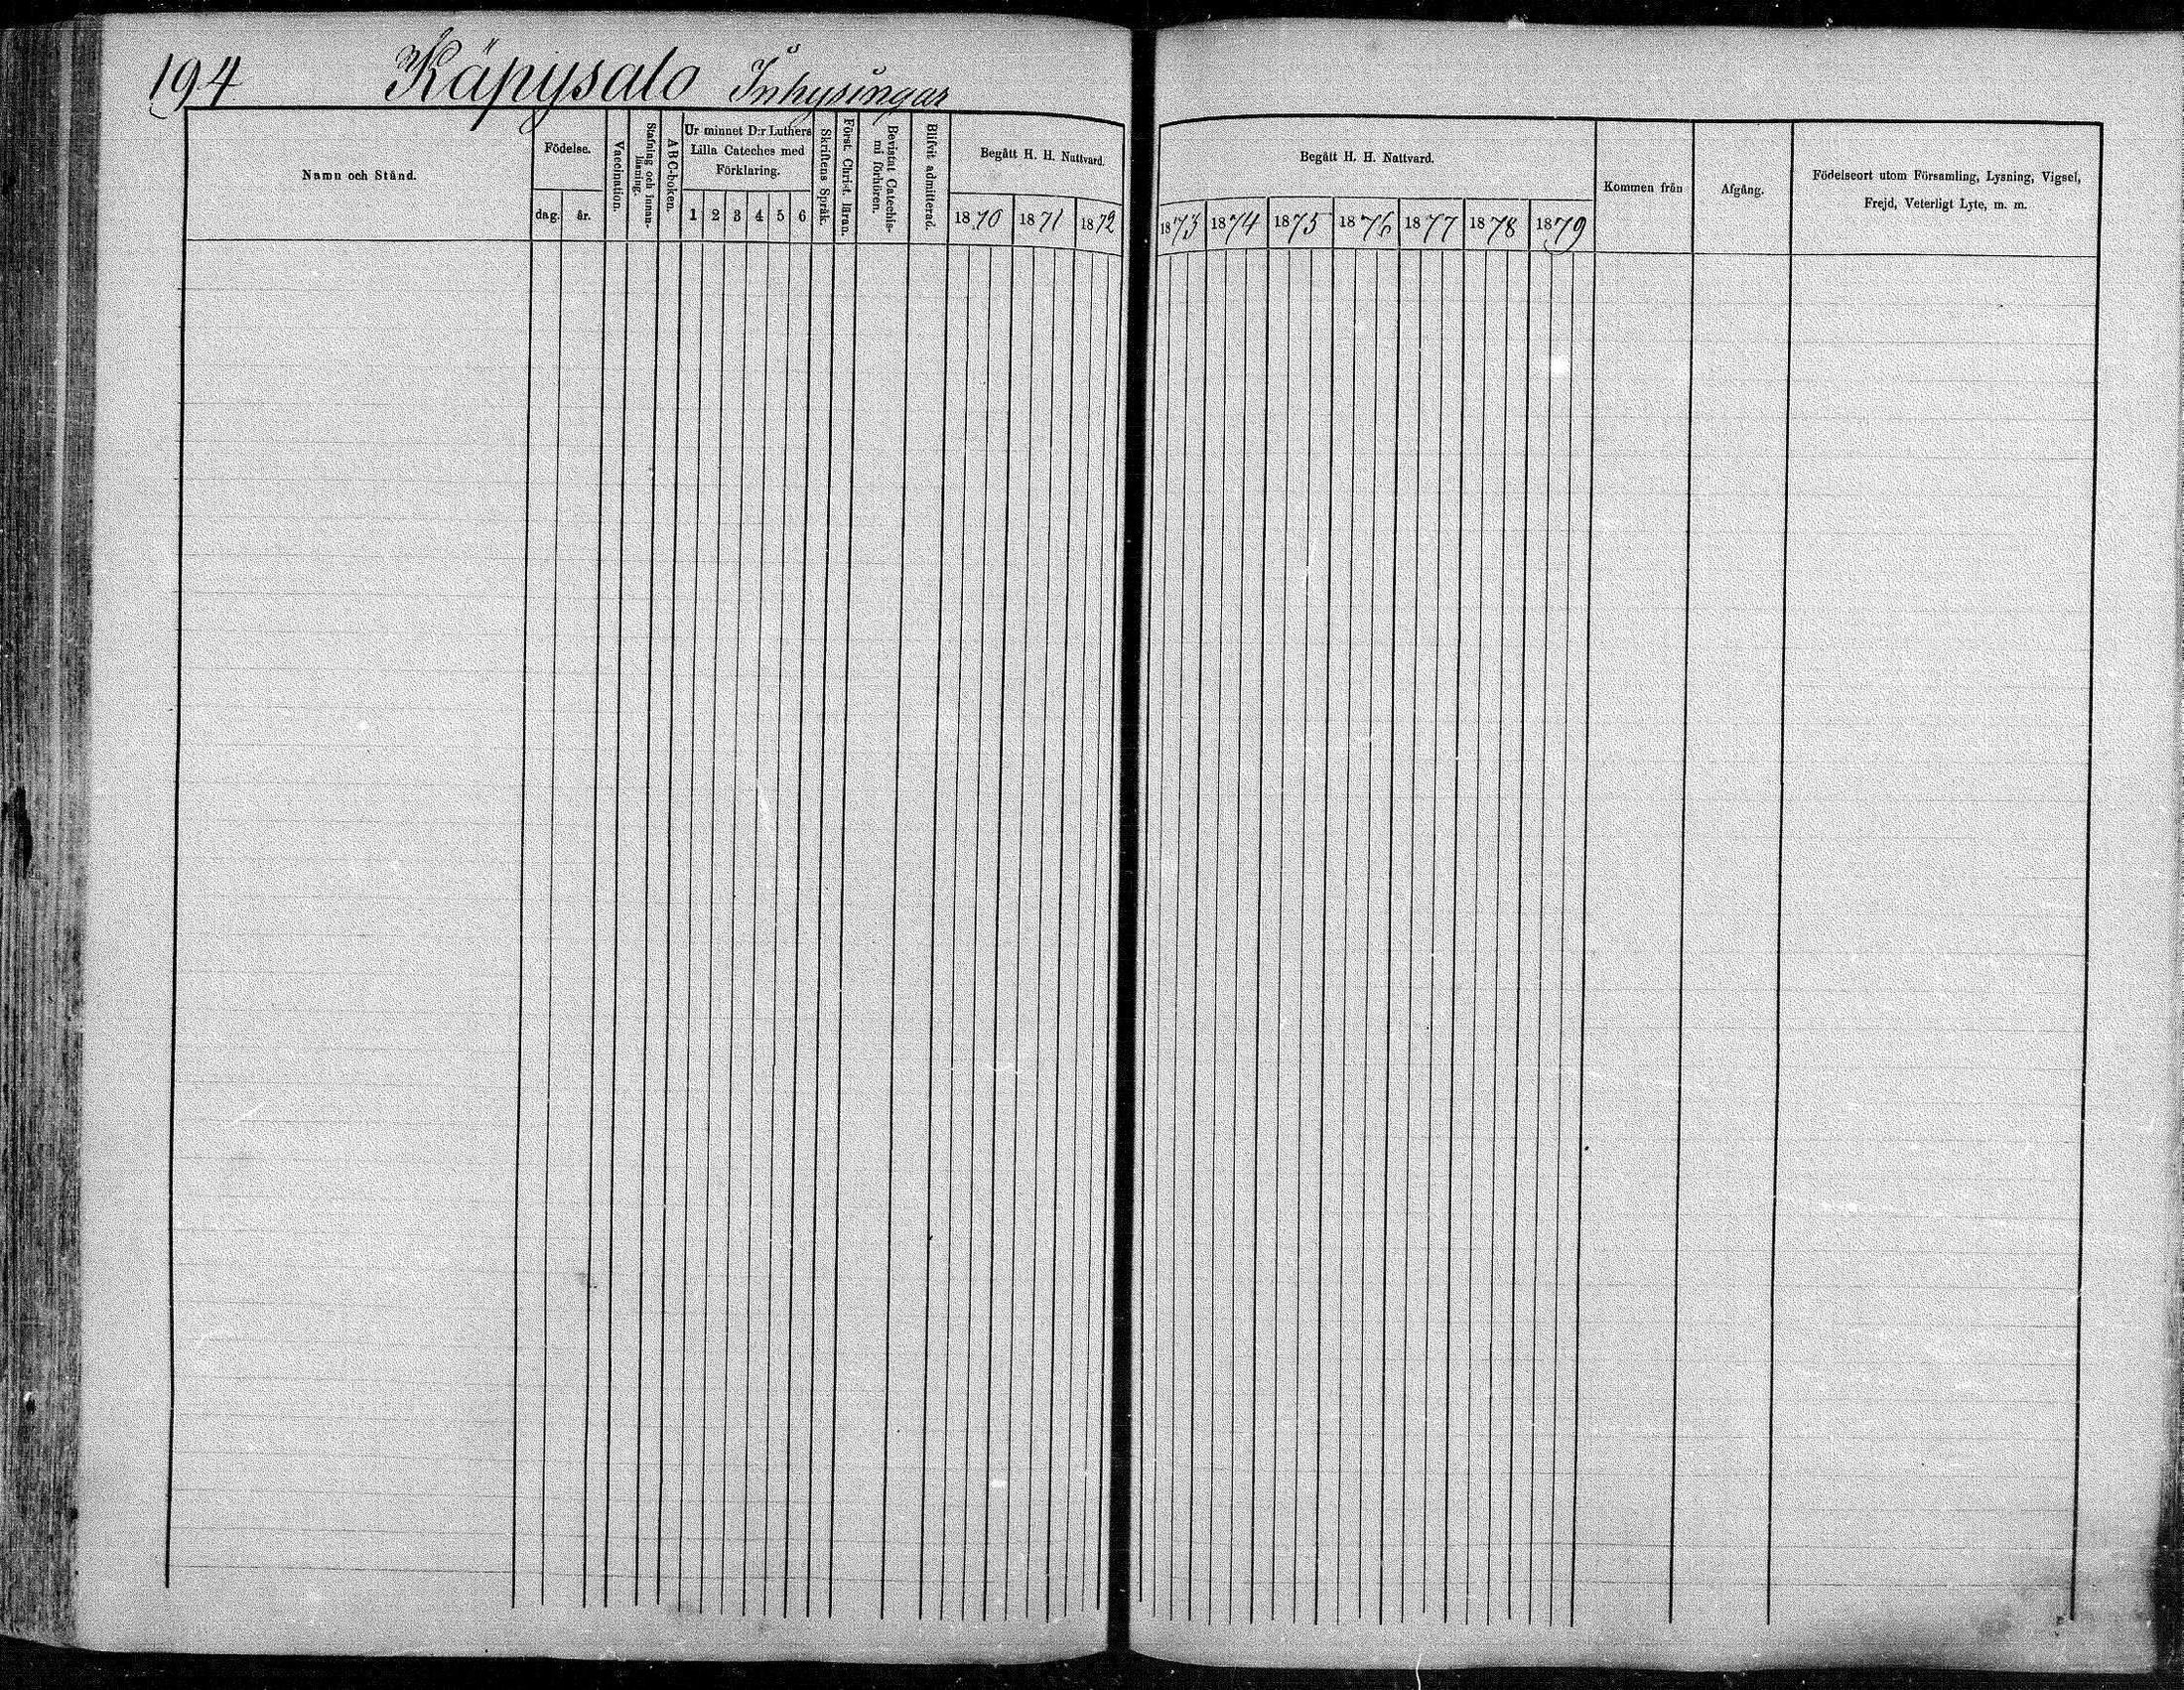 194 Käpysalo Inhysingar
Namn och Stånd.
Födelse.
dag. år.
Vaccination.
Stafning och Innan-
läsning.
ABC-boken.
Ur minnet D:r Luthers
Lilla Cateches med
Förklaring.
1 2 3 4 5 6
Skriftens Språk.
Först. Christ. läran.
Bevistat Catechis-
mi förhören.
Blifvit admitterad.
Begått H. H. Nattvard.
1870 1871 1872
Begått H. H. Nattvard.
1873 1874 1875 1876 1877 1878 1879
Kommen från
Afgång.
Födelseort utom Församling, Lysning, Vigsel,
Frejd, Veterligt Lyte, m. m.